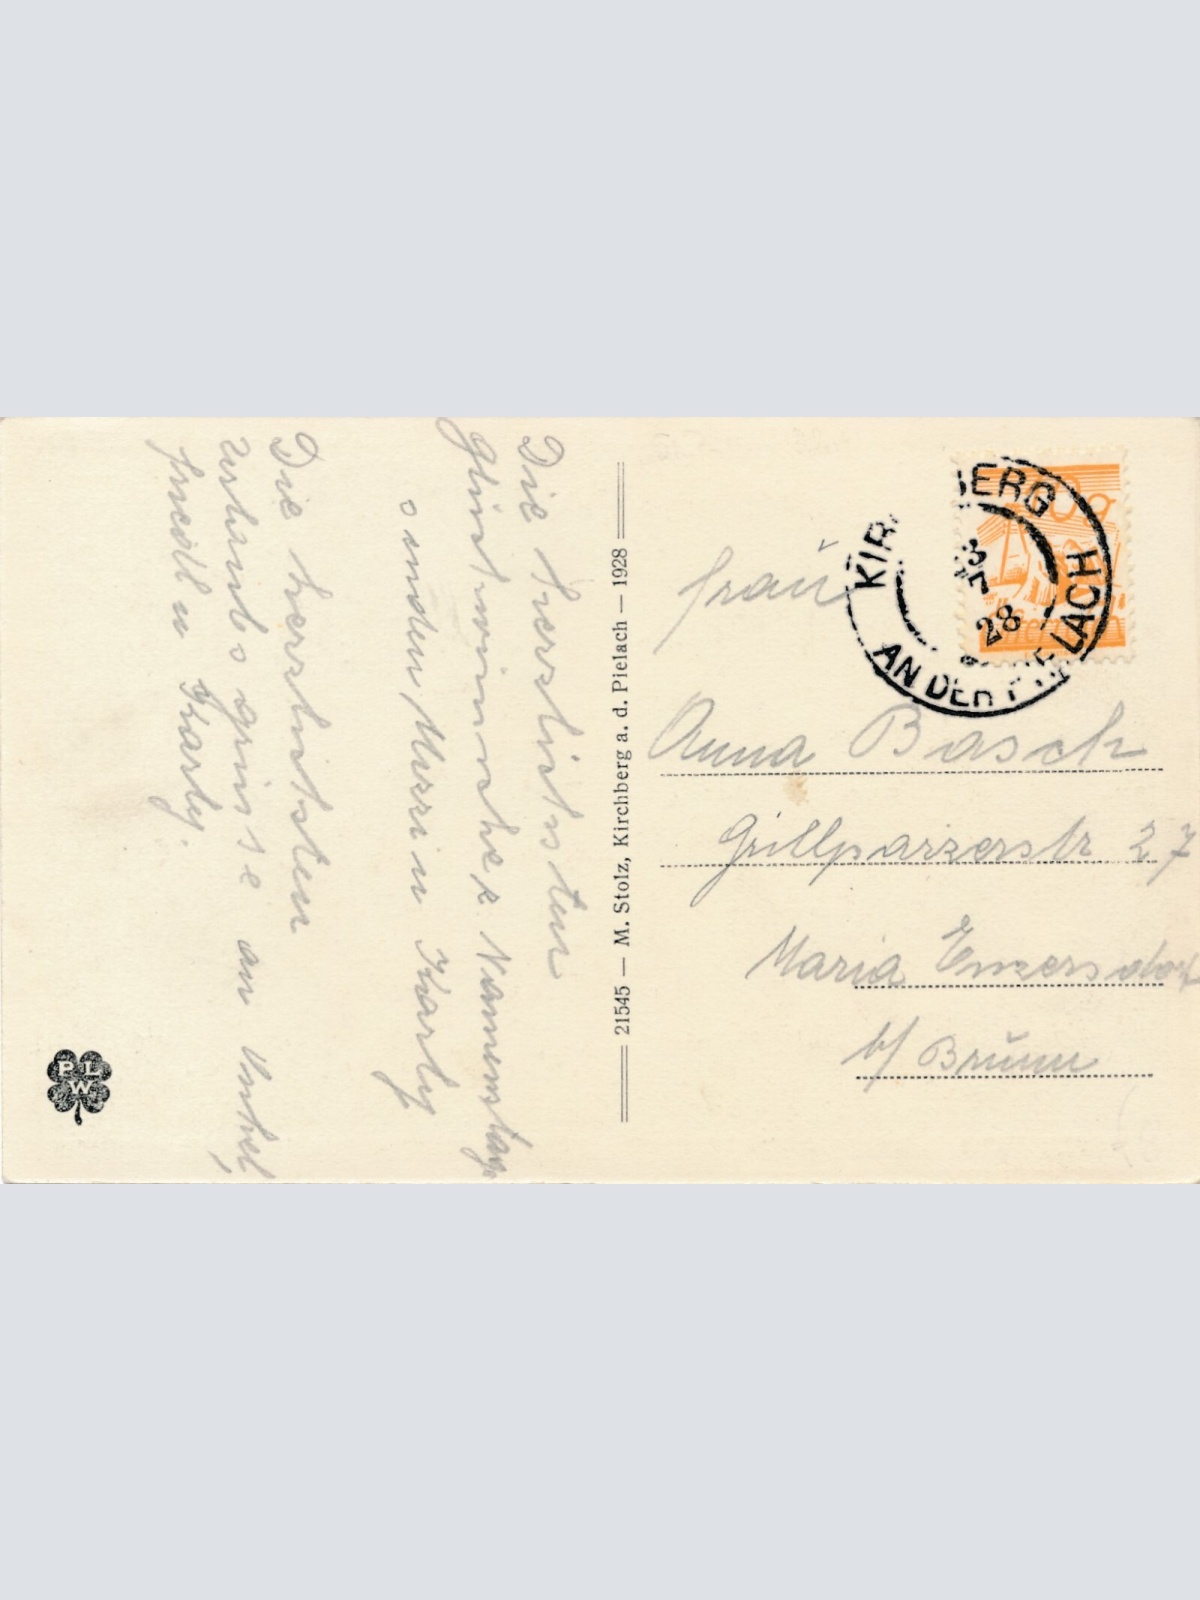 Die herzlichsten
Glückwünsche z. Namenstage
senden, Mizzi u Karly
Die herzlichsten
Urlaubsgrüsse an Onkel,
friedl u Karly.
PLW
21545 — M. Stolz, Kirchberg a. d. Pielach — 1928
KIRCHBERG AN DER PIELACH
28
Frau
Anna Basch
Grillparzerstr 27
Maria Enzersdorf
b/ Brünn